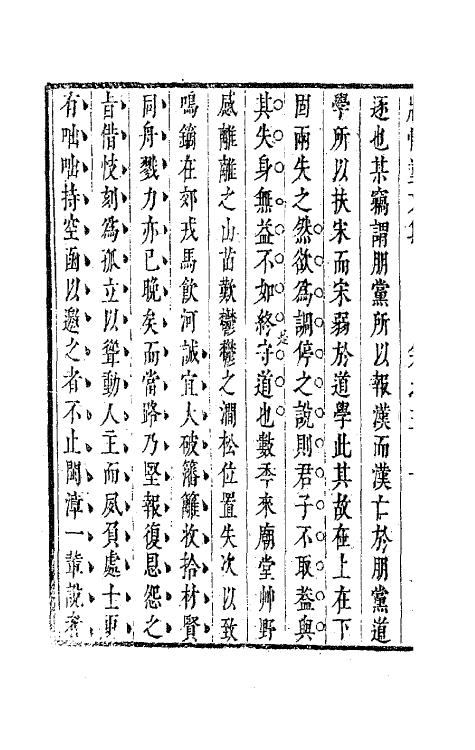 逐也某竊謂朋黨所以報漢而漢亡於朋黨道
學所以扶宋而宋弱於道學此其故在上在下
固兩失之然欲爲調停之說則君子不取葢與
其失身無益不如終守道也數季來廟堂艸野
感離離之山苗歎鬱鬱之澗松位置失次以致
鳴鏑在郊戎馬飮河誠宜大破藩籬收拾材賢
同舟戮力亦已晚矣而當路乃堅報復恩怨之
㫖借忮刻爲孤立以聳動人主而夙負處士更
有咄咄持空函以邀之者不止閩漳一輩說者